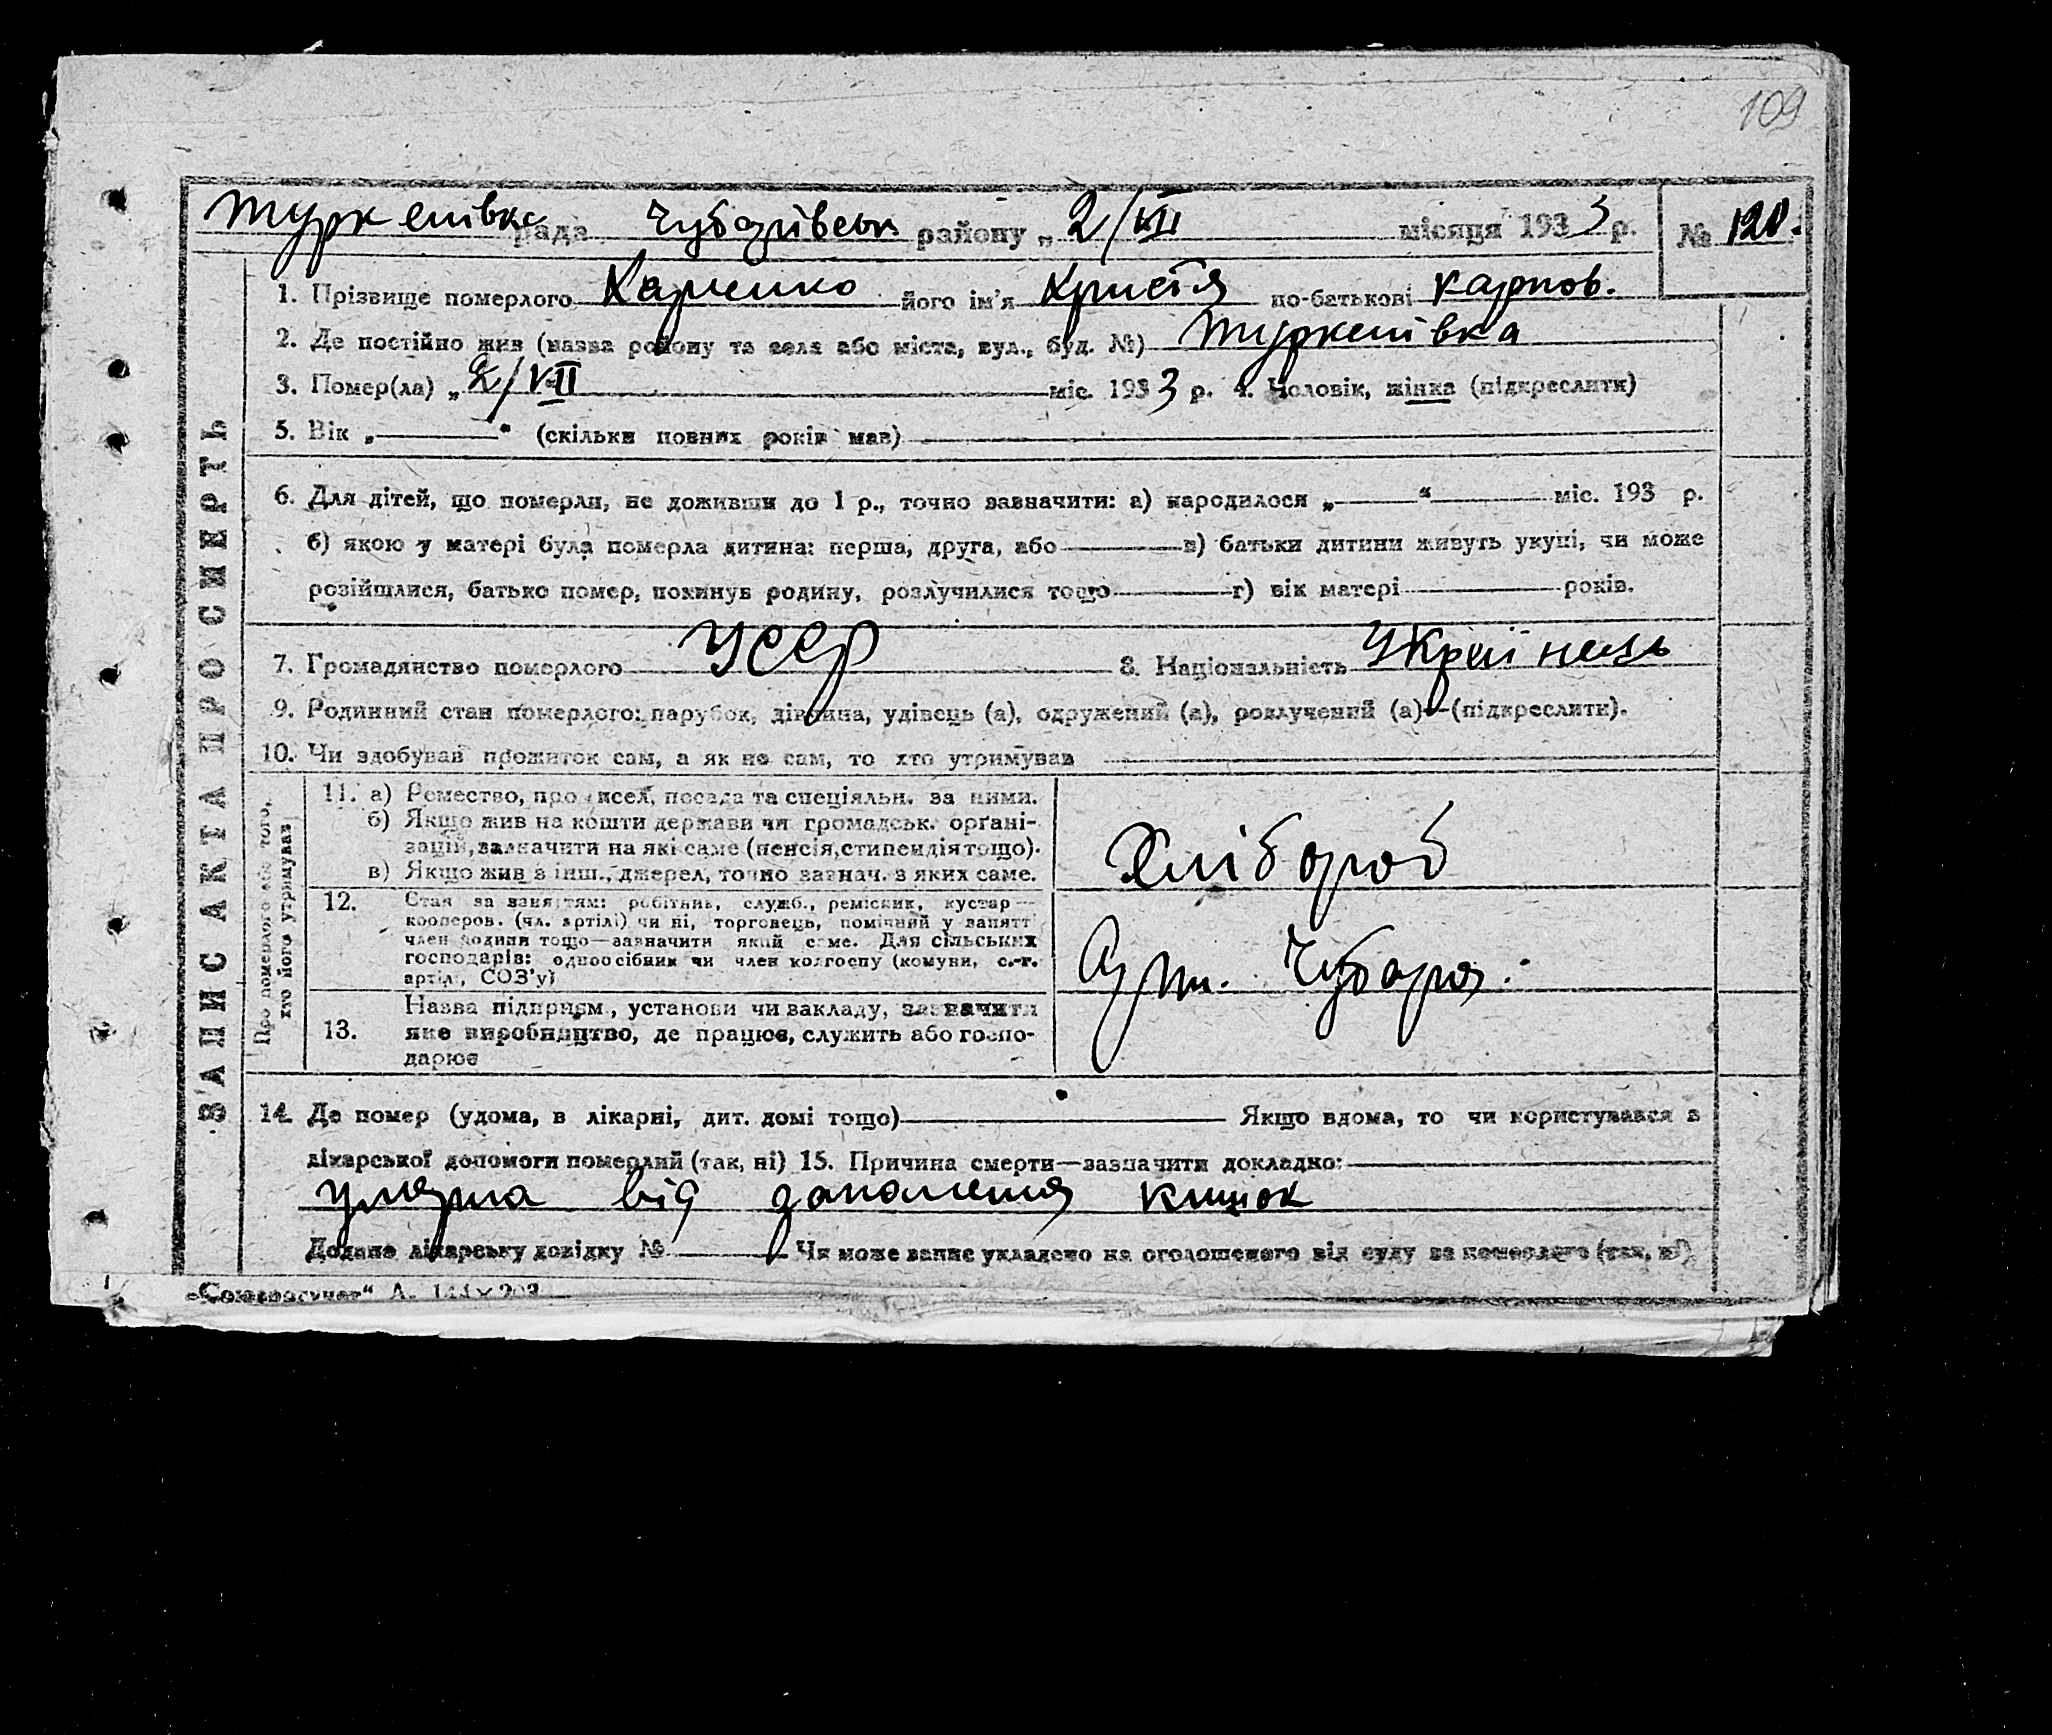 109
Туркенівка рада Чубарівськ району „ 2/VII місяця 1933 р. № 120.
ЗАПИС АКТА ПРО СМЕРТЬ
1. Прізвище померлого Харченко його ім'я Христя по-батькові Карпов.
2. Де постійно жив (назва району та села або міста, вул., буд. №) Туркенівка
3. Помер(ла) „ /VII міс. 1933 р. 4. Чоловік, жінка (підкреслити)
5. Вік „ — " (скільки повних років мав)
6. Для дітей, що померли, не доживши до 1 р., точно зазначити: а) народилося „ — " міс. 193 р.
б) якою у матері була померла дитина: перша, друга, або — в) батьки дитини живуть укупі, чи може
розійшлися, батько помер, покинув родину, розлучилися тощо — г) вік матері — років.
7. Громадянство померлого УССР 8. Національність Українець
9. Родинний стан померлого: парубок, дівчина, удівець (а), одружений (а), розлучений (а)—(підкреслити).
10. Чи здобував прожиток сам, а як не сам, то хто утримував
Про померлого або того,
хто його утримував
11. а) Ремество, промисел, посада та спеціяльн. за ними.
б) Якщо жив на кошти держави чи громадськ. орґані-
зацій, зазначити на які саме (пенсія, стипендія тощо).
в) Якщо жив з інш. джерел, точно зазнач. з яких саме.
Хлібороб
12. Стан за заняттям: робітник, служб., ремісник, кустар—
кооперов. (чл. артілі) чи ні, торговець, помічний у занятті
член родини тощо—зазначити який саме. Для сільських
господарів: одноосібник чи член колгоспу (комуни, с.-г.
артіл., СОЗ'у)
Арт. Чубаря.
13. Назва підприєм., установи чи закладу, зазначити
яке виробництво, де працює, служить або госпо-
дарює
14. Де помер (удома, в лікарні, дит. домі тощо) — Якщо вдома, то чи користувався з
лікарської допомоги померлий (так, ні) 15. Причина смерти—зазначити докладно:
умерла від запалення кишок
Додано лікарську довідку № — Чи може запис укладено на оголошеного від суду за померлого (так, ні)